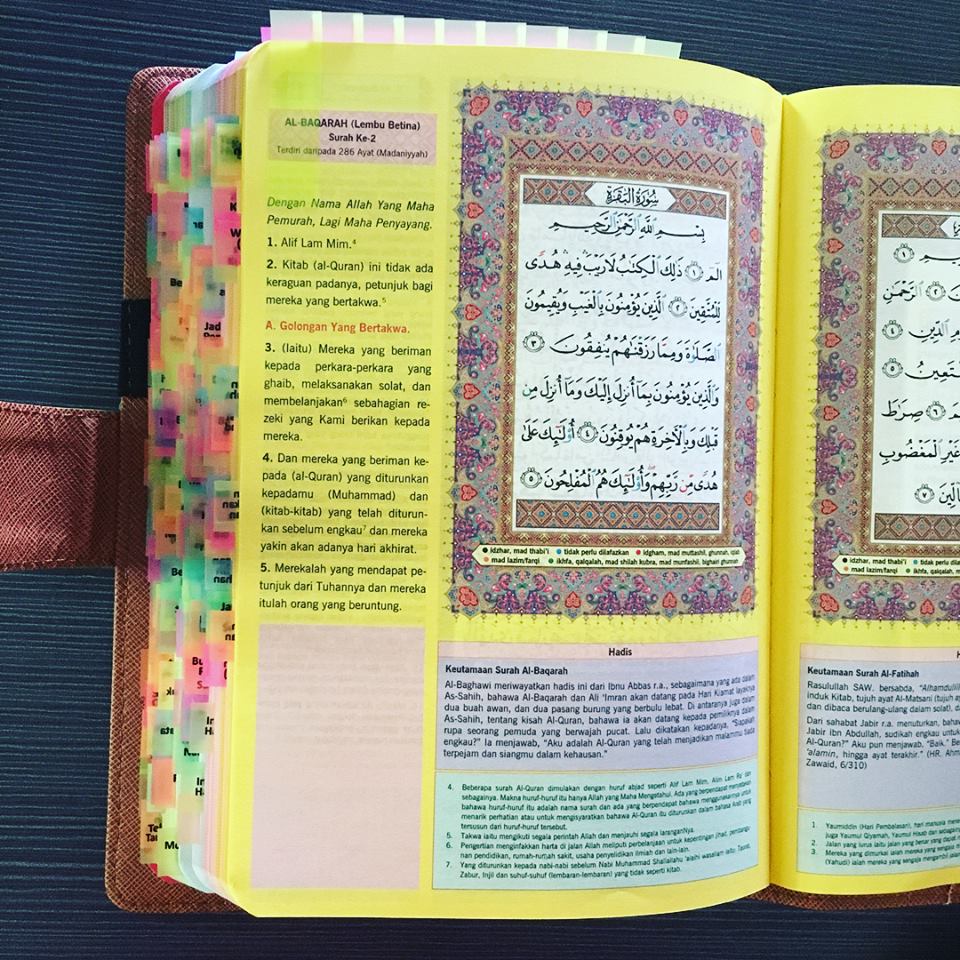 AL-BAQARAH (Lembu Betina)
Surah Ke-2
Terdiri daripada 286 Ayat (Madaniyyah)
Dengan Nama Allah Yang Maha
Pemurah, Lagi Maha Penyayang.
1. Alif Lam Mim.⁴
2. Kitab (al-Quran) ini tidak ada
keraguan padanya, petunjuk bagi
mereka yang bertakwa.⁵
A. Golongan Yang Bertakwa.
3. (Iaitu) Mereka yang beriman
kepada perkara-perkara yang
ghaib, melaksanakan solat, dan
membelanjakan⁶ sebahagian re-
zeki yang Kami berikan kepada
mereka.
4. Dan mereka yang beriman ke-
pada (al-Quran) yang diturunkan
kepadamu (Muhammad) dan
(kitab-kitab) yang telah diturun-
kan sebelum engkau⁷ dan mereka
yakin akan adanya hari akhirat.
5. Merekalah yang mendapat pe-
tunjuk dari Tuhannya dan mereka
itulah orang yang beruntung.
سُورَةُ الْبَقَرَةِ
بِسْمِ اللَّهِ الرَّحْمَٰنِ الرَّحِيمِ
الٓمٓ ۝١ ذَٰلِكَ الْكِتَٰبُ لَا رَيْبَ ۛ فِيهِ ۛ هُدًى
لِلْمُتَّقِينَ ۝٢ الَّذِينَ يُؤْمِنُونَ بِالْغَيْبِ وَيُقِيمُونَ
الصَّلَوٰةَ وَمِمَّا رَزَقْنَٰهُمْ يُنْفِقُونَ ۝٣
وَالَّذِينَ يُؤْمِنُونَ بِمَا أُنْزِلَ إِلَيْكَ وَمَا أُنْزِلَ مِنْ
قَبْلِكَ وَبِالْآخِرَةِ هُمْ يُوقِنُونَ ۝٤ أُولَٰئِكَ عَلَىٰ
هُدًى مِنْ رَبِّهِمْ ۖ وَأُولَٰئِكَ هُمُ الْمُفْلِحُونَ ۝٥
izhar, mad thabi'i tidak perlu dilafazkan idgham, mad muttashil, ghunnah, iqlab
mad lazim/farqi ikhfa, qalqalah, mad shilah kubra, mad munfashil, bighairi ghunnah
Hadis
Keutamaan Surah Al-Baqarah
Al-Baghawi meriwayatkan hadis ini dari Ibnu Abbas r.a., sebagaimana yang ada dalam
As-Sahih, bahawa Al-Baqarah dan Ali 'Imran akan datang pada Hari Kiamat layaknya
dua buah awan, dan dua pasang burung yang berbulu lebat. Di antaranya juga dalam
As-Sahih, tentang kisah Al-Quran, bahawa ia akan datang kepada pemiliknya dalam
rupa seorang pemuda yang berwajah pucat. Lalu dikatakan kepadanya, "Siapakah
engkau?" Ia menjawab, "Aku adalah Al-Quran yang telah menjadikan malammu tiada
terpejam dan siangmu dalam kehausan."
4. Beberapa surah Al-Quran dimulakan dengan huruf abjad seperti Alif Lam Mim, Alim Lam Ra' dan
sebagainya. Makna huruf-huruf itu hanya Allah Yang Maha Mengetahui. Ada yang berpendapat menyatakan
bahawa huruf-huruf itu adalah nama surah dan ada yang berpendapat bahawa menggunakannya untuk
menarik perhatian atau untuk mengisyaratkan bahawa Al-Quran itu diturunkan dalam bahasa Arab yang
tersusun dari huruf-huruf tersebut.
5. Takwa iaitu mengikuti segala perintah Allah dan menjauhi segala laranganNya.
6. Pengertian menginfakkan harta di jalan Allah meliputi perbelanjaan untuk kepentingan jihad, pembangu-
nan pendidikan, rumah-rumah sakit, usaha penyelidikan ilmiah dan lain-lain.
7. Yang diturunkan kepada nabi-nabi sebelum Nabi Muhammad Shallallahu 'alaihi wasallam iaitu: Taurat,
Zabur, Injil dan suhuf-suhuf (lembaran-lembaran) yang tidak seperti kitab.
izhar, mad thabi'i tidak perlu
mad lazim/farqi ikhfa, qalqalah,
Keutamaan Surah Al-Fatihah
Rasulullah SAW. bersabda,
induk Kitab, tujuh ayat Al-Matsani
dan dibaca berulang-ulang dalam solat),
Dari sahabat Jabir r.a. menuturkan,
Jabir ibn Abdullah, sudikah engkau
Al-Quran?" Aku pun menjawab, "Baik."
'alamin, hingga ayat terakhir." (HR.
Zawaid, 6/310)
1. Yaumiddin (Hari Pembalasan), hari manusia
juga Yaumul Qiyamah, Yaumul Hisab dan
2. Jalan yang lurus iaitu jalan yang benar yang
3. Mereka yang dimurkai ialah mereka yang sengaja
(Yahudi) ialah mereka yang sengaja